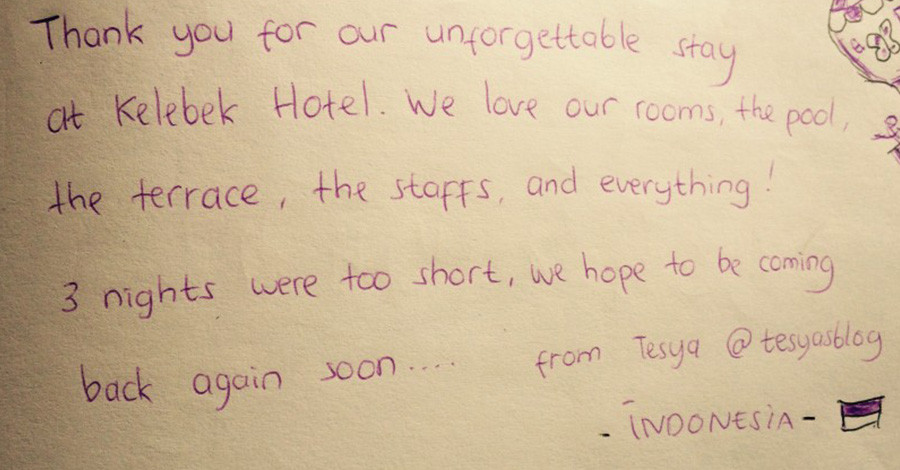 Thank you for our unforgettable stay
at Kelebek Hotel. We love our rooms, the pool,
the terrace, the staffs, and everything!
3 nights were too short, we hope to be coming
back again soon.... from Tesya @tesyasblog
- INDONESiA -